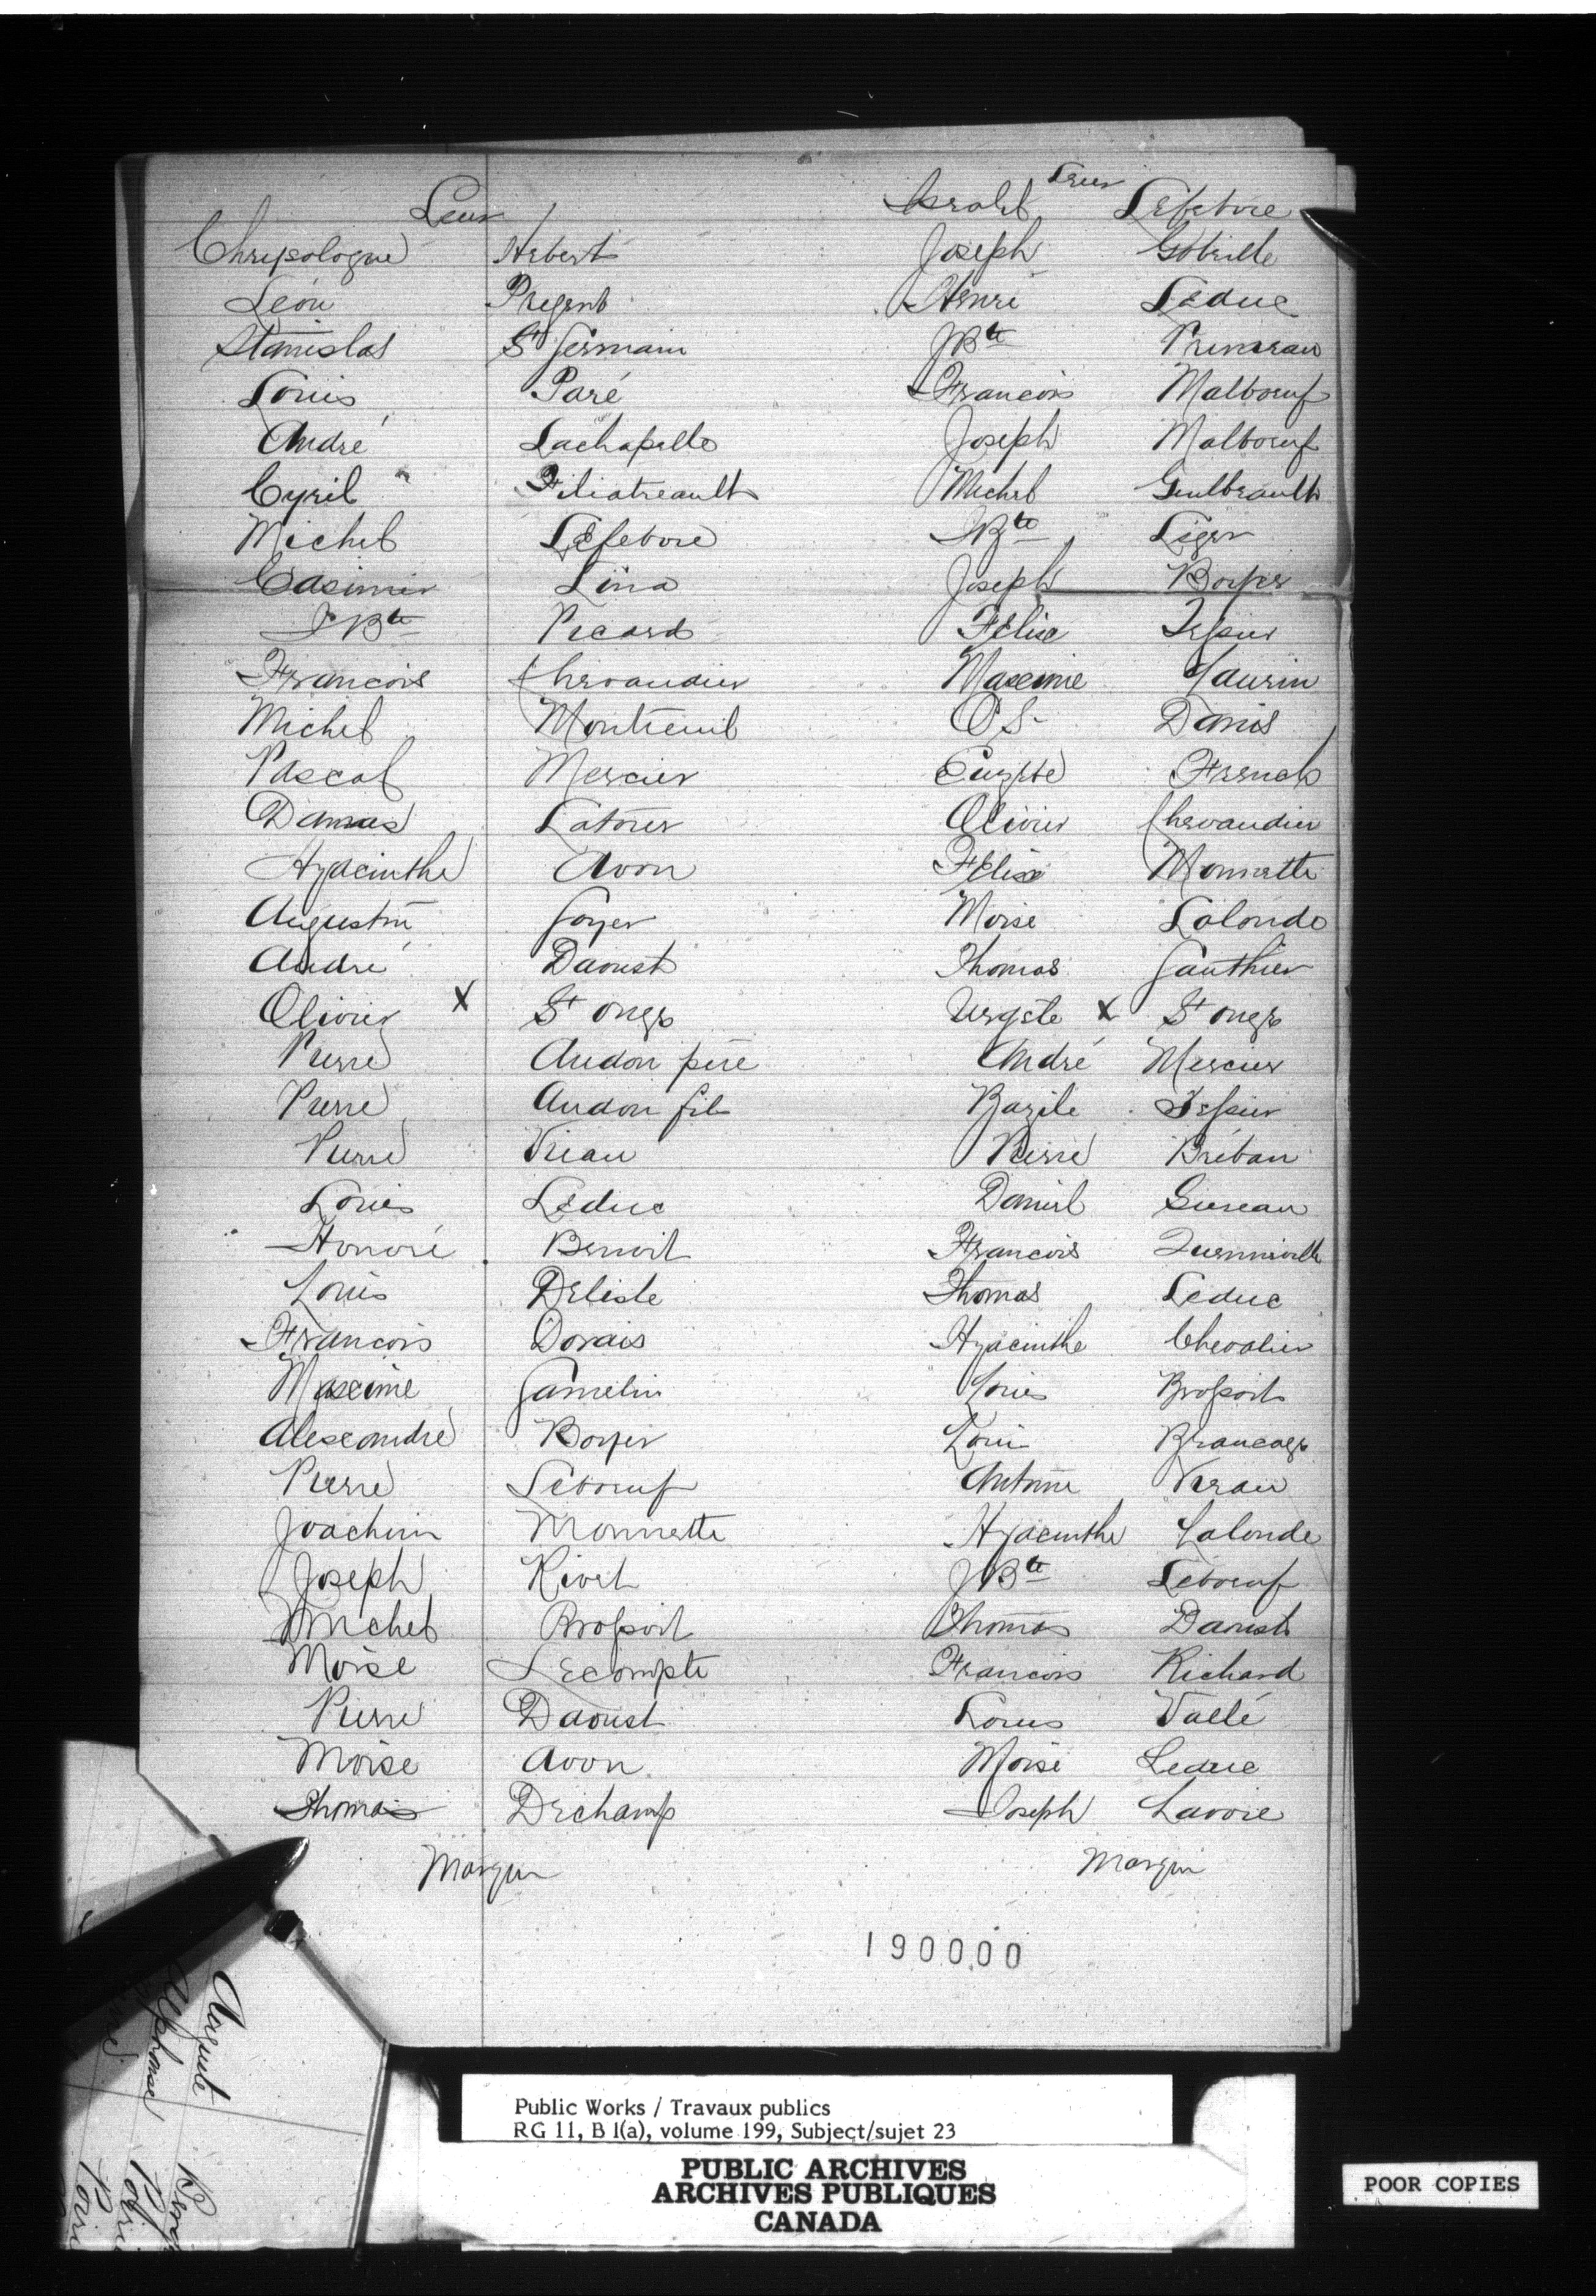 Leur Israhl Leur Lefebvre
Chrysologue Hebert Joseph Gobeille
Léon Pregent Henri Leduc
Stanislas St Germain JBte Primeau
Louis Paré Francois Malboeuf
André Lachapelle Joseph Malboeuf
Cyril Filiatreault Michel Guilbeault
Michel Lefebvre JBte Liger
Casimir Lina Joseph Boyer
J Bte Picard Félix Tessier
Francois Chevaudier Maxime Laurin
Michel Montreuil O S Danis
Pascal Mercier Euzèbe French
Damas Latour Olivier Chevaudier
Hyacinthe Avon Félix Monnette
Augustin Goyer Moise Lalonde
André Daoust Thomas Gauthier
Olivier X St onge X St onge
Pierre Audon père André Mercier
Pierre Audon fils Bazile Tessier
Pierre Viau Pierre Brébau
Louis Leduc Daniel
Honoré Benoit Francois Quenneville
Louis Delisle Thomas Leduc
Francois Dorais Hyacinthe Chevalier
Maxime Gamelin Louis Brossoit
Alexandre Boyer Louis
Pierre Leboeuf Antoine
Joachim Monnette Hyacinthe Lalonde
Joseph Rivet JBte Leboeuf
Michel Brossoit Thomas Daoust
Moïse Lecompte Francois Richard
Pierre Daoust Louis Vallé
Moïse Avon Moïse Leduc
Thomas Dechamp Joseph Lavoie
Margin Margin
190000
Public Works / Travaux publics
RG 11, B 1(a), volume 199, Subject/sujet 23
PUBLIC ARCHIVES
ARCHIVES PUBLIQUES
CANADA
POOR COPIES